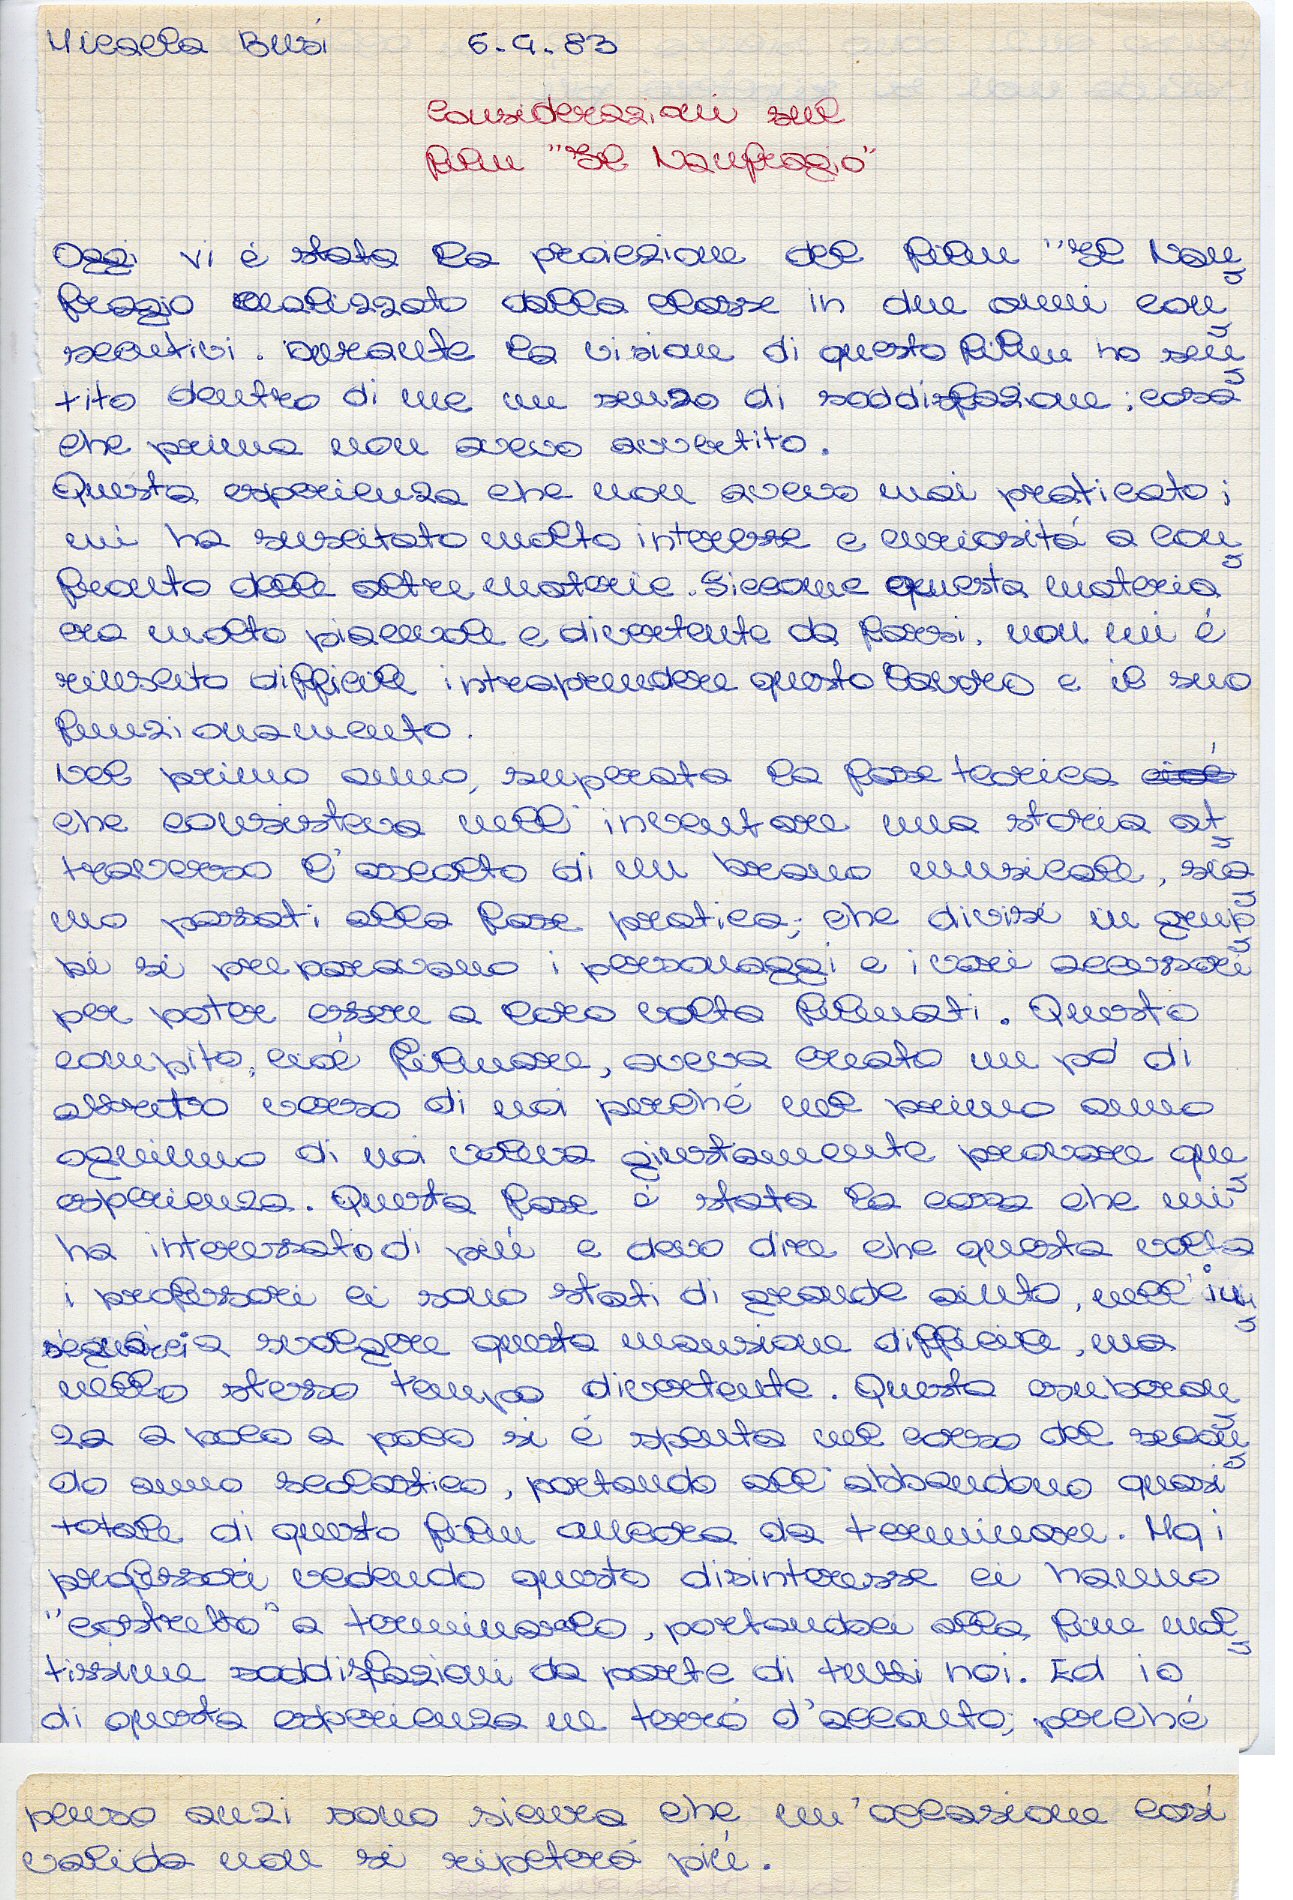 Micaela Busi 6.4.83
Considerazioni sul
film "Il Naufragio"
Oggi vi è stata la proiezione del film "Il Nau
fraggio realizzato dalla classe in due anni con
secutivi. Durante la visione di questo film ho sen
tito dentro di me un senso di soddisfazione; cosa
che prima non avevo avvertito.
Questa esperienza che non avevo mai praticato;
mi ha suscitato molto interesse e curiosità a con
fronto delle altre materie. Siccome questa materia
era molto piacevole e divertente da farsi, non mi è
riuscito difficile intraprendere questo lavoro e il suo
funzionamento.
Nel primo anno, superata la fase teorica cioè
che consisteva nell'inventare una storia at
traverso l'ascolto di un brano musicale, sia
mo passati alla fase pratica; che divisi in grup
pi si preparavano i personaggi e i vari accessori
per poter essere a loro volta filmati. Questo
compito, cioè filmare, aveva creato un pò di
attrito verso di noi perché nel primo anno
ognuno di noi voleva giustamente provare que
esperienza. Questa fase è stata la cosa che mi
ha interessato di più e devo dire che questa volta
i professori ci sono stati di grande aiuto, nell'in
segnarci a svolgere questa mansione difficile, ma
nello stesso tempo divertente. Questa esuberan
za a poco a poco si è spenta nel corso del secon
do anno scolastico, portando all'abbandono quasi
totale di questo film ancora da terminare. Ma i
professori vedendo questo disinteresse ci hanno
"costretto" a terminarlo, portandoci alla fine mol
tissime soddisfazioni da parte di tutti noi. Ed io
di questa esperienza ne terrò d'accanto; perché
penso anzi sono sicura che un'occasione così
valida non si ripeterà più.